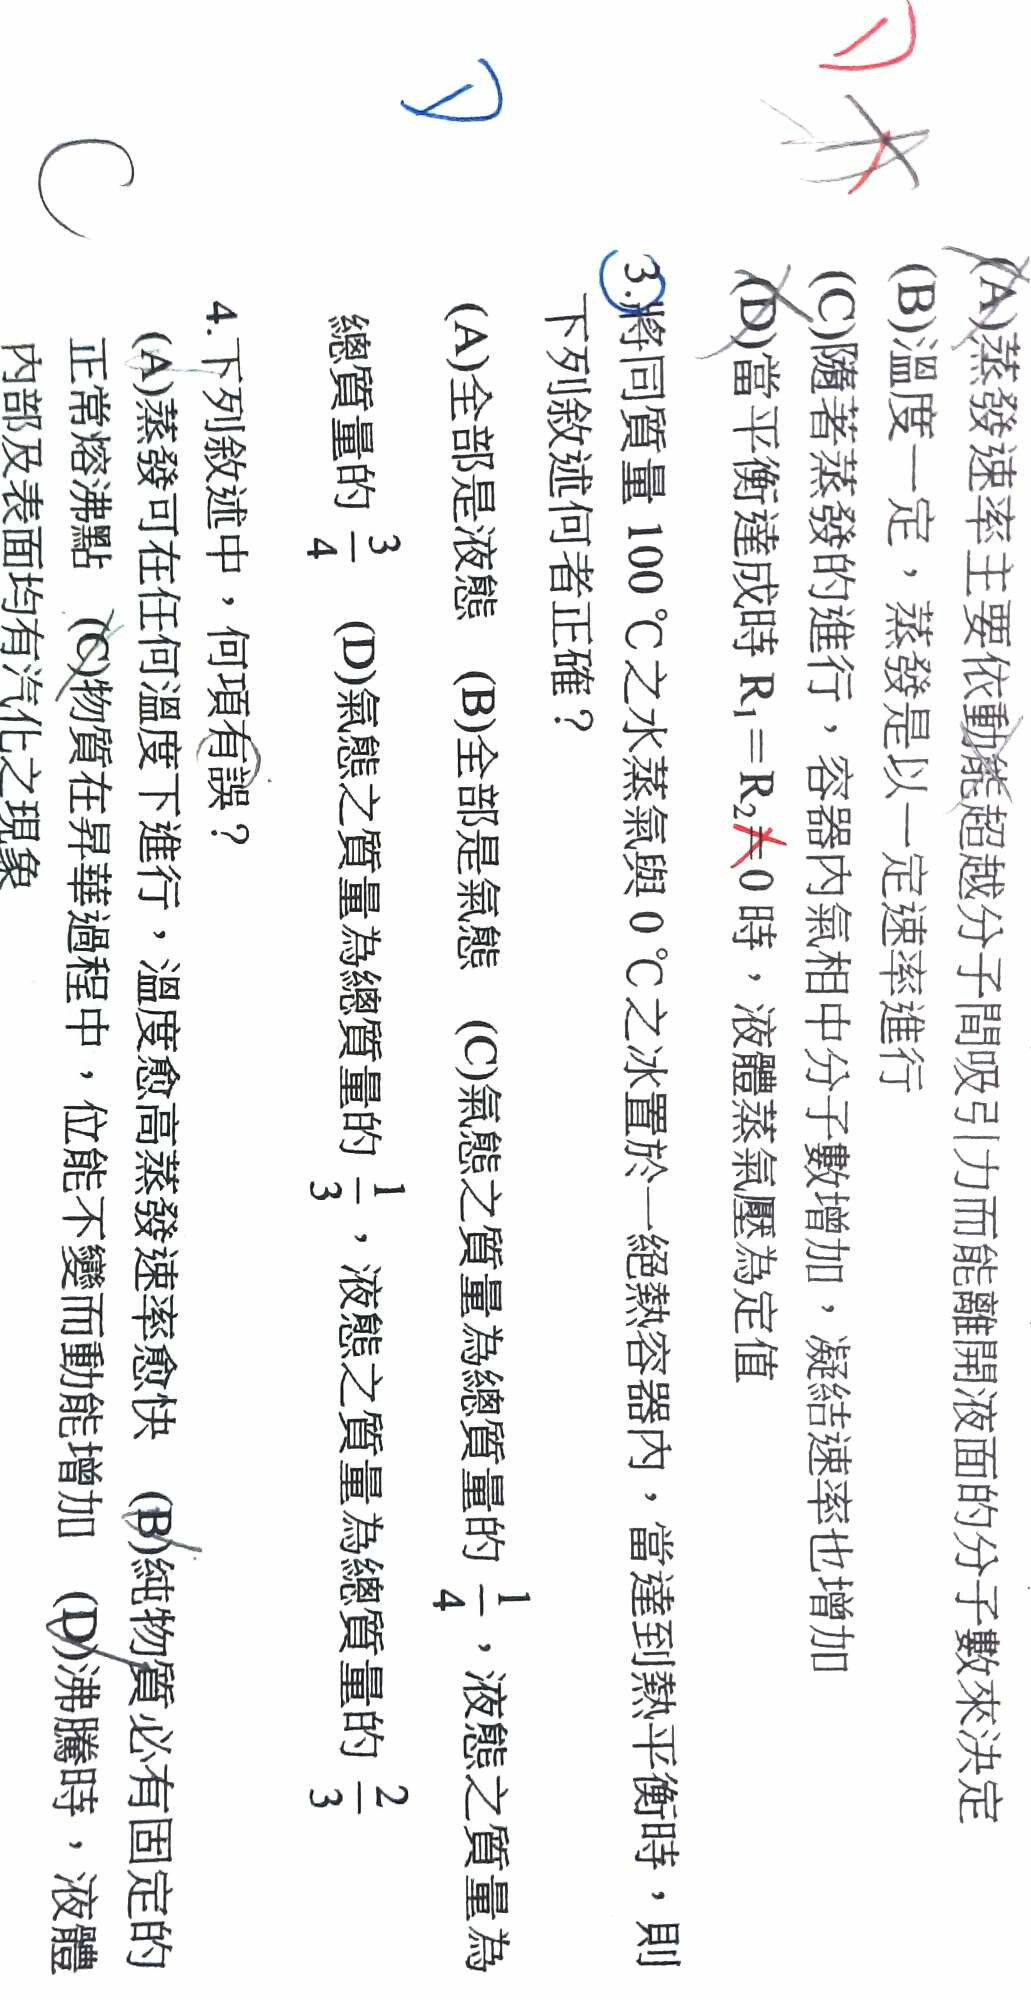 D A
(A)蒸發速率主要依動能超越分子間吸引力而能離開液面的分子數來決定
(B)溫度一定，蒸發是以一定速率進行
(C)隨著蒸發的進行，容器內氣相中分子數增加，凝結速率也增加
(D)當平衡達成時 R₁＝R₂＝0 時，液體蒸氣壓為定值
D
3.將同質量 100 ℃之水蒸氣與 0 ℃之冰置於一絕熱容器內，當達到熱平衡時，則
下列敘述何者正確？
(A)全部是液態 (B)全部是氣態 (C)氣態之質量為總質量的 1/4，液態之質量為
總質量的 3/4 (D)氣態之質量為總質量的 1/3，液態之質量為總質量的 2/3
C
4.下列敘述中，何項有誤？
(A)蒸發可在任何溫度下進行，溫度愈高蒸發速率愈快 (B)純物質必有固定的
正常熔沸點 (C)物質在昇華過程中，位能不變而動能增加 (D)沸騰時，液體
內部及表面均有汽化之現象